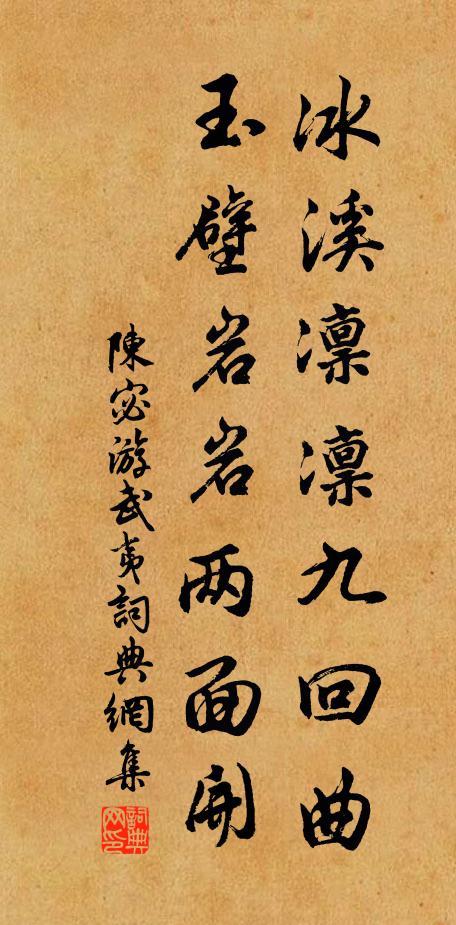 冰溪凛凛九回曲
玉壁岩岩两面開
陳宓游武夷詞典網集
詞典网印